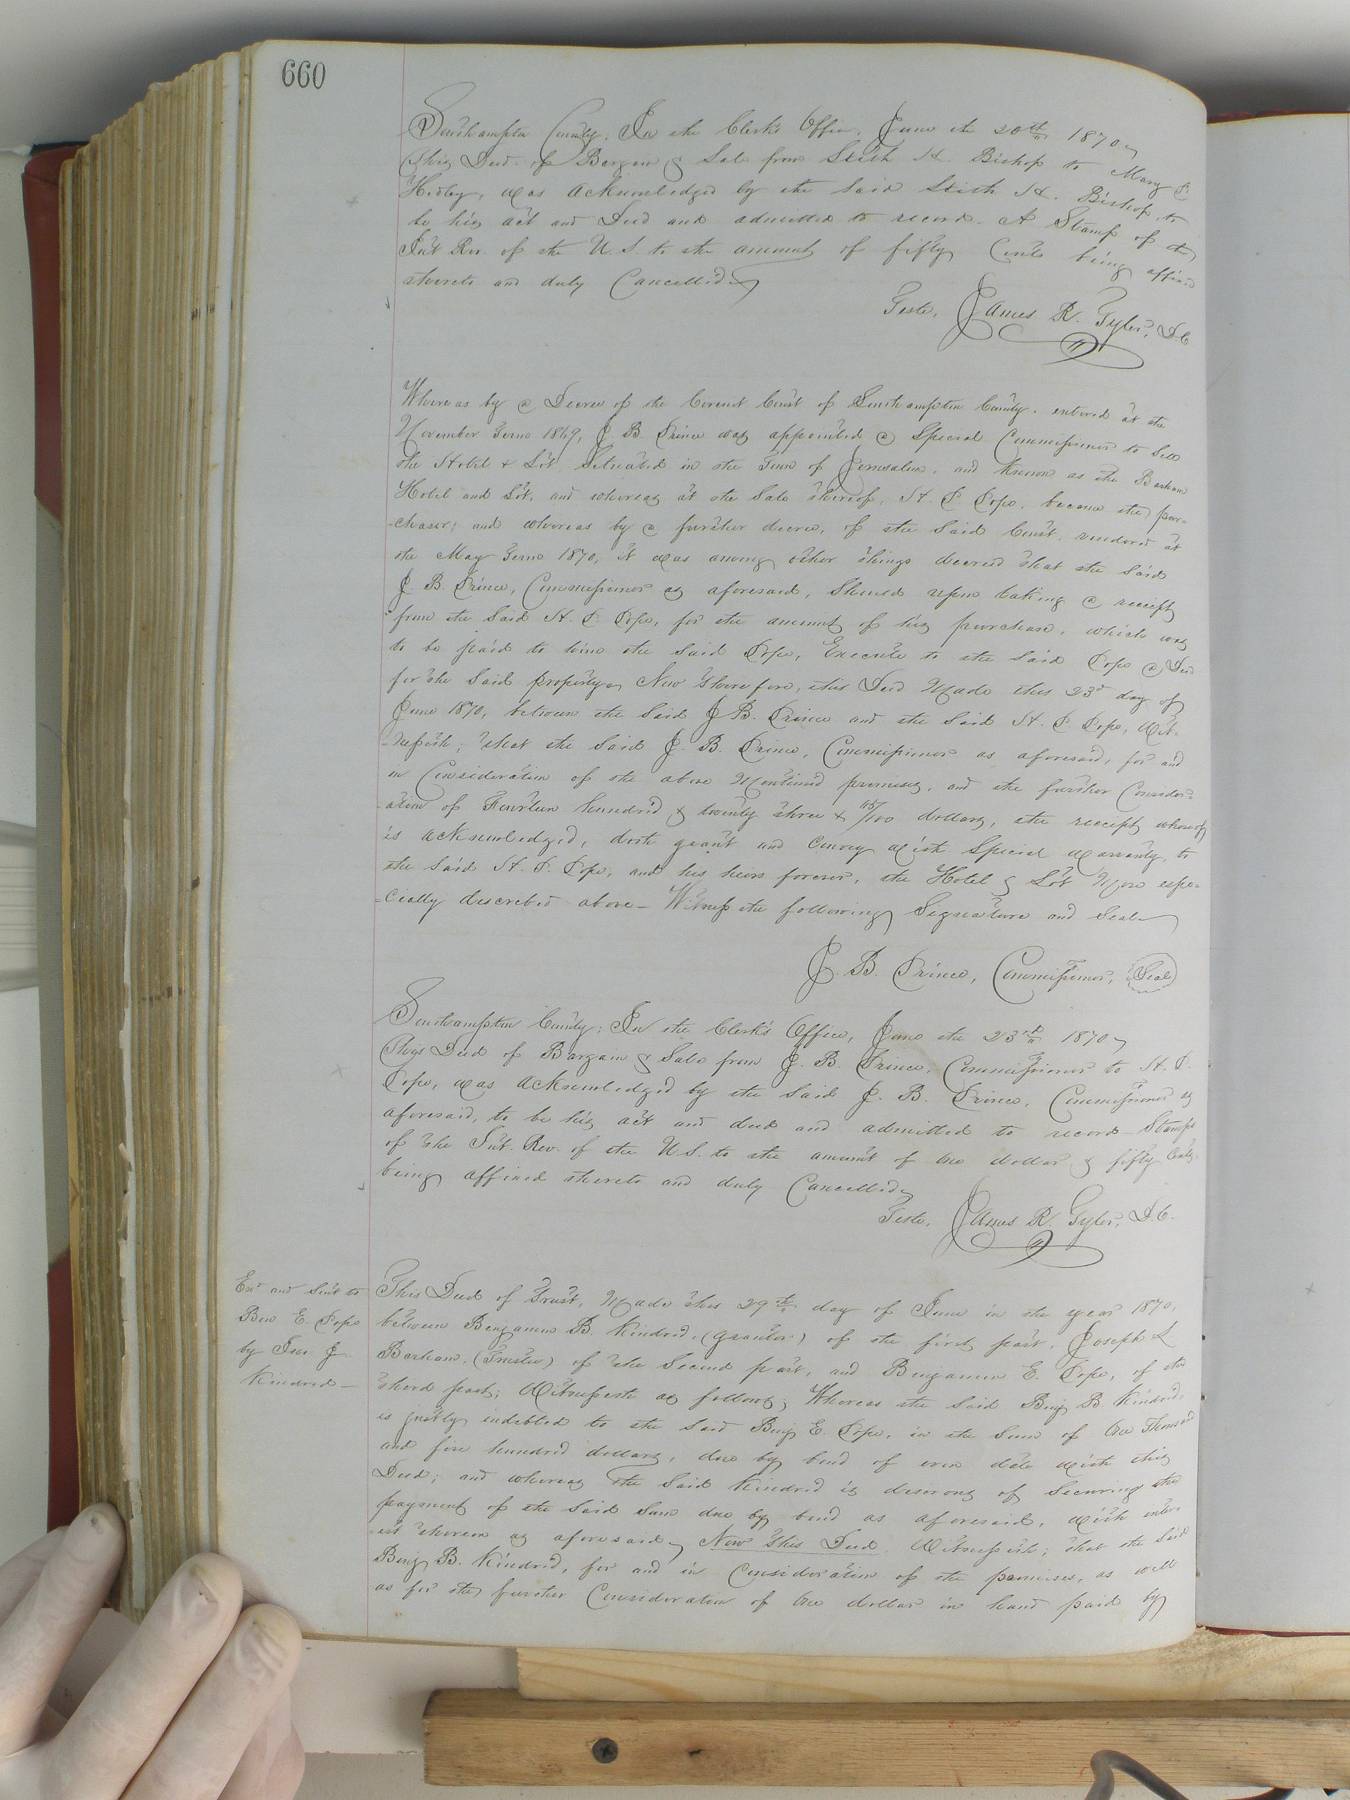 660
Southampton County; In the Clerk's Office, June the 20th 1870,
This Deed of Bargain & Sale from Stith H. Bishop to Mary
was acknowledged by the said Stith H. Bishop to
be his act and Deed and admitted to record. A Stamp of the
Int. Rev. of the U.S. to the amount of fifty Cents being affixed
thereto and duly Cancelled
Teste, James R. Tyler, D.C.
Whereas by a Decree of the Circuit Court of Southampton County, entered at the
November Term 1869, J B. Prince was appointed a Special Commissioner to sell
the Hotel & Lot, Situated in the Town of Jerusalem, and known as the Barham
Hotel and Lot, and whereas at the Sale thereof, H. P. Pope, became the pur-
-chaser; and whereas by a further decree, of the said Court, rendered at
the May Term 1870, it was among other things decreed that the said
J B. Prince, Commissioner as aforesaid, Should upon taking a receipt
from the said H. P. Pope, for the amount of his purchase, which was
to be paid to him the said Pope, Execute to the said Pope a Deed
for the said property, Now therefore, this Deed Made this 23d day of
June 1870, between the said J B. Prince and the said H. P. Pope, Wit-
-nesseth, that the said J. B. Prince, Commissioner as aforesaid, for and
in Consideration of the above Mentioned premises, and the further Consider-
-ation of Fourteen hundred & twenty three & /100 dollars, the receipt whereof
is acknowledged, doth grant and Convey with Special warranty, to
the said H. P. Pope, and his heirs forever, the Hotel & Lot More espe-
-cially described above - Witness the following Signature and Seal
J. B. Prince, Commissioner, Seal
Southampton County; In the Clerk's Office, June the 23rd 1870,
This Deed of Bargain & Sale from J. B. Prince, Commissioner to H. P.
Pope, was acknowledged by the said J. B. Prince, Commissioner as
aforesaid, to be his act and deed and admitted to record - Stamps
of the Int. Rev. of the U.S. to the amount of One dollar & fifty Cents,
being affixed thereto and duly Cancelled
Teste, James R. Tyler, D.C.
Exd and Sent to
Ben E. Pope
by Jno J.
Kindred -
This Deed of Trust, Made this 29th day of June in the year 1870,
between Benjamin B. Kindred, (Grantor) of the first part, Joseph L
Barham, (Trustee) of the Second part, and Benjamin E. Pope, of the
third part; Witnesseth as follows; Whereas the said Benj B. Kindred,
is justly indebted to the said Benj E. Pope, in the Sum of One Thousand
and five hundred dollars, due by bond of even date with this
Deed; and whereas the said Kindred is desirous of Securing the
payment of the said Sum due by bond as aforesaid, with inter-
-est thereon as aforesaid, Now this Deed Witnesseth; that the said
Benj B. Kindred, for and in Consideration of the premises, as well
as for the further Consideration of One dollar in hand paid by